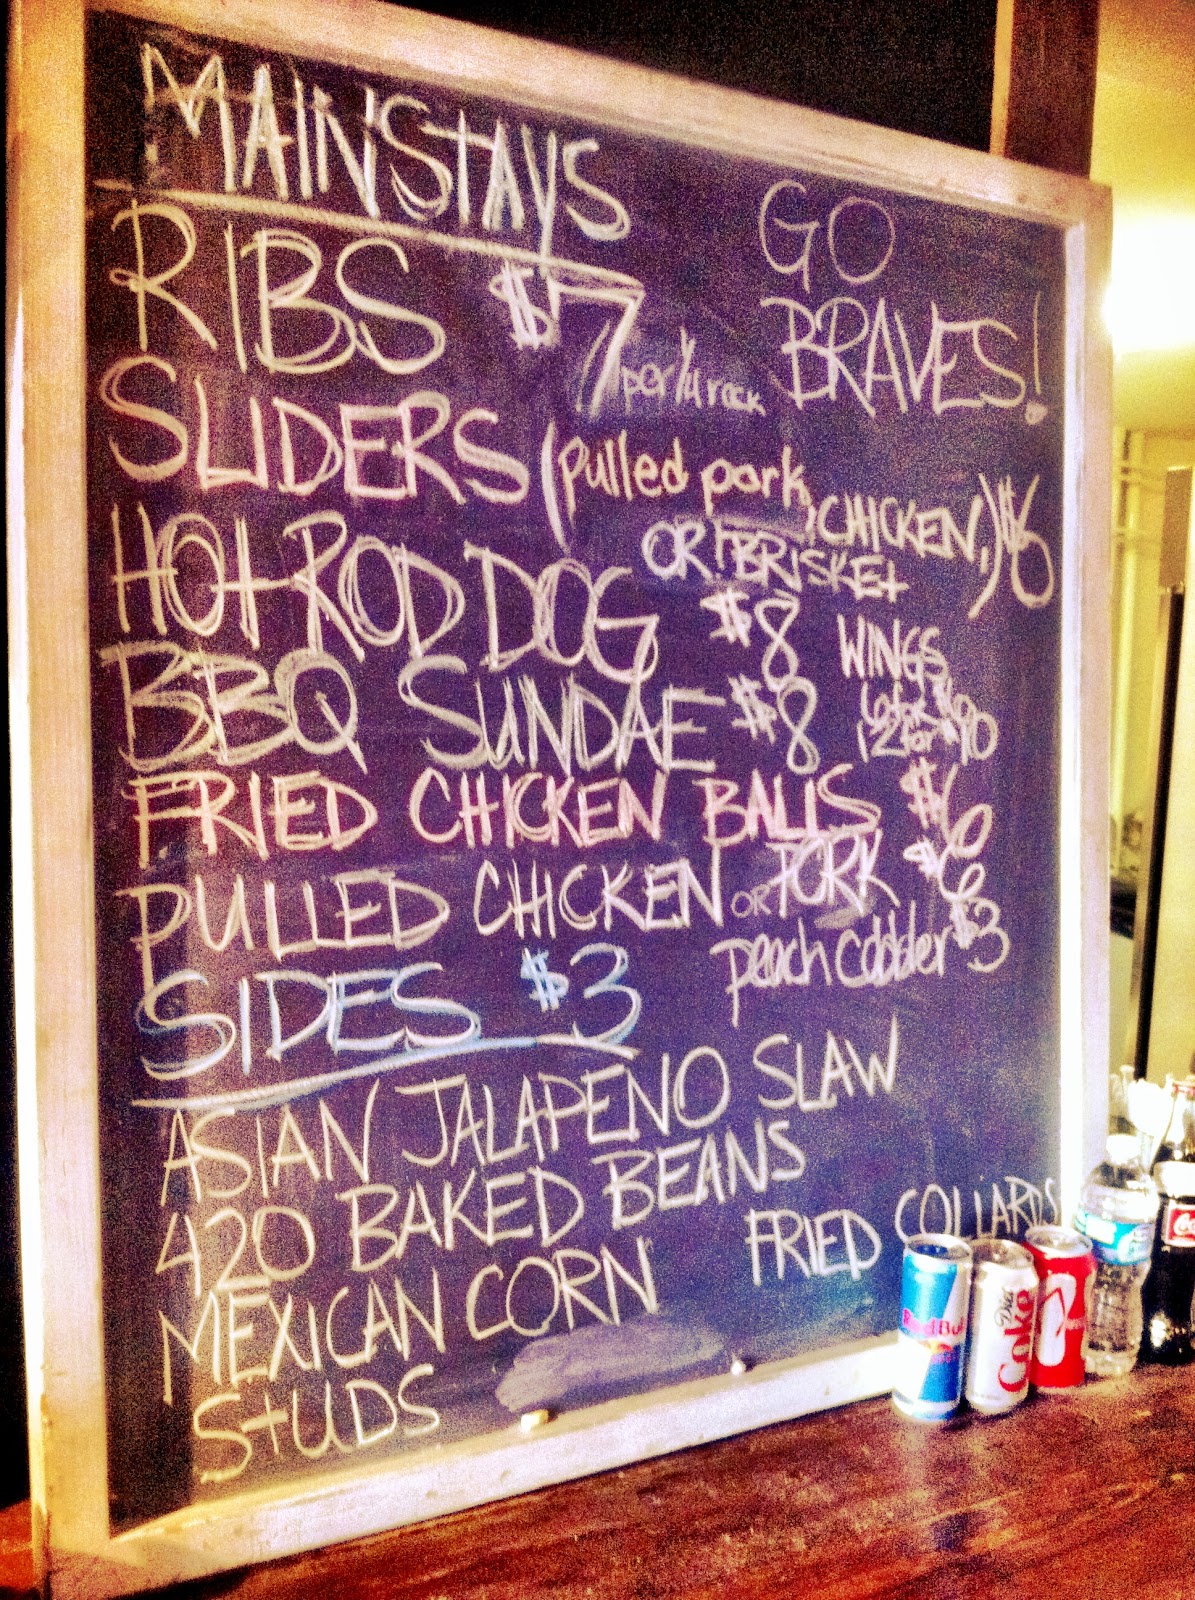 MAINSTAYS
GO
BRAVES!
RIBS $7 per 1/4 rack
SLIDERS (pulled pork, CHICKEN,) $6
OR BRISKET
HOT ROD DOG $8
WINGS
6 for $6
12 for $10
BBQ SUNDAE $8
FRIED CHICKEN BALLS $6
PULLED CHICKEN OR PORK $6
SIDES $3
peach cobbler $3
ASIAN JALAPENO SLAW
420 BAKED BEANS
FRIED COLLARDS
MEXICAN CORN
STUDS
Red Bull
Diet Coke